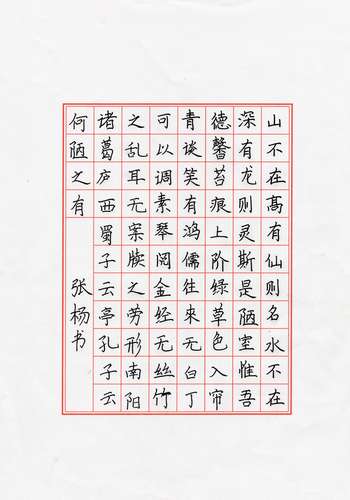 山不在髙有仙则名水不在
深有龙则灵斯是陋室惟吾
德馨苔痕上阶绿草色入帘
青谈笑有鸿儒往來无白丁
可以调素琴阅金经无丝竹
之乱耳无案牍之劳形南阳
诸葛庐西蜀子云亭孔子云
何陋之有
张杨书